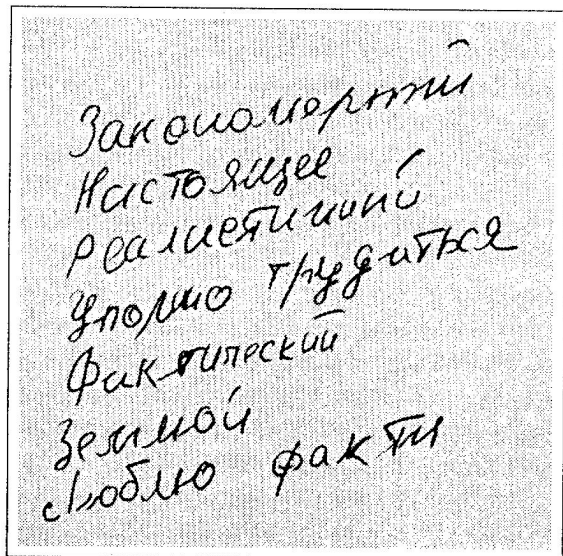 Закономерный
Настоящее
Реалистичный
Упорно трудиться
Фактический
Земной
Люблю факты